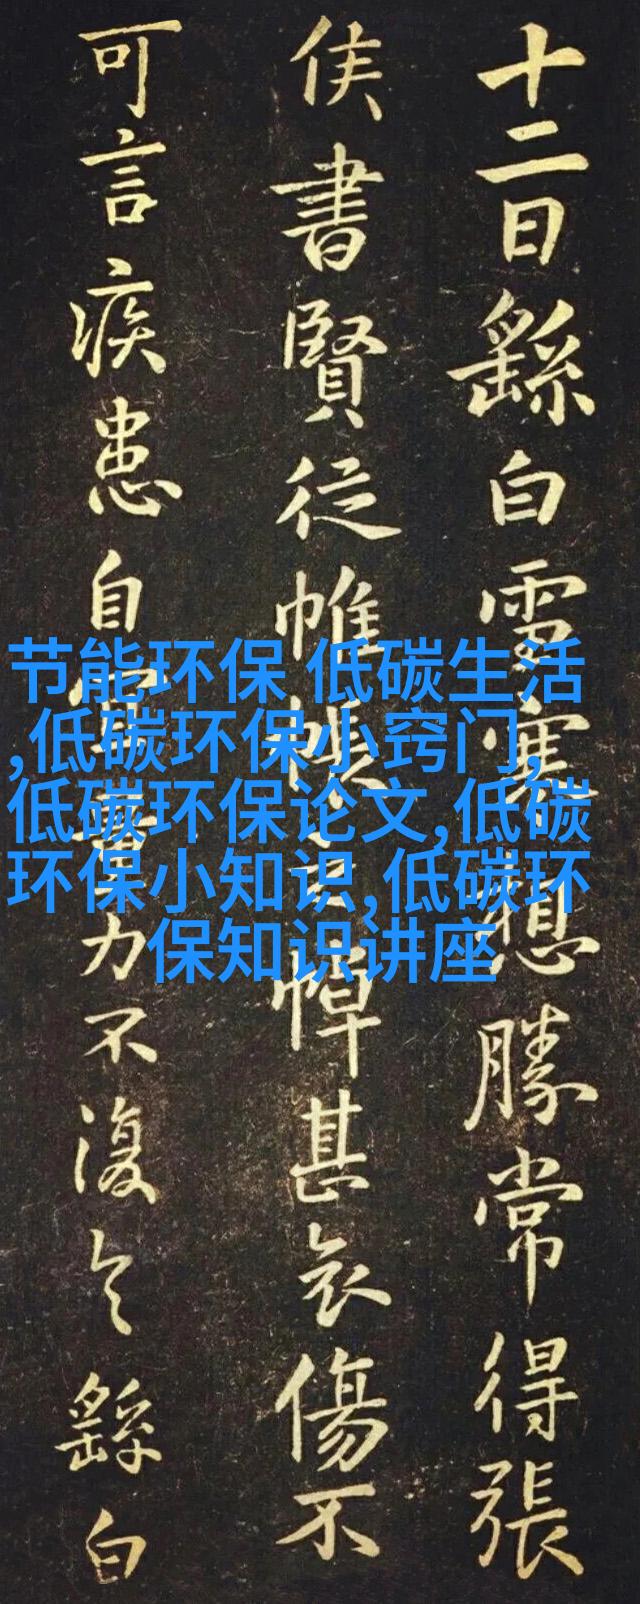 十二日繇白雪寒想勝常得張
侯書賢從帷帳之悼甚哀傷不
可言疾患自宜量力不復繇白
节能环保 低碳生活
,低碳环保小窍门,
低碳环保论文,低碳
环保小知识,低碳环
保知识讲座